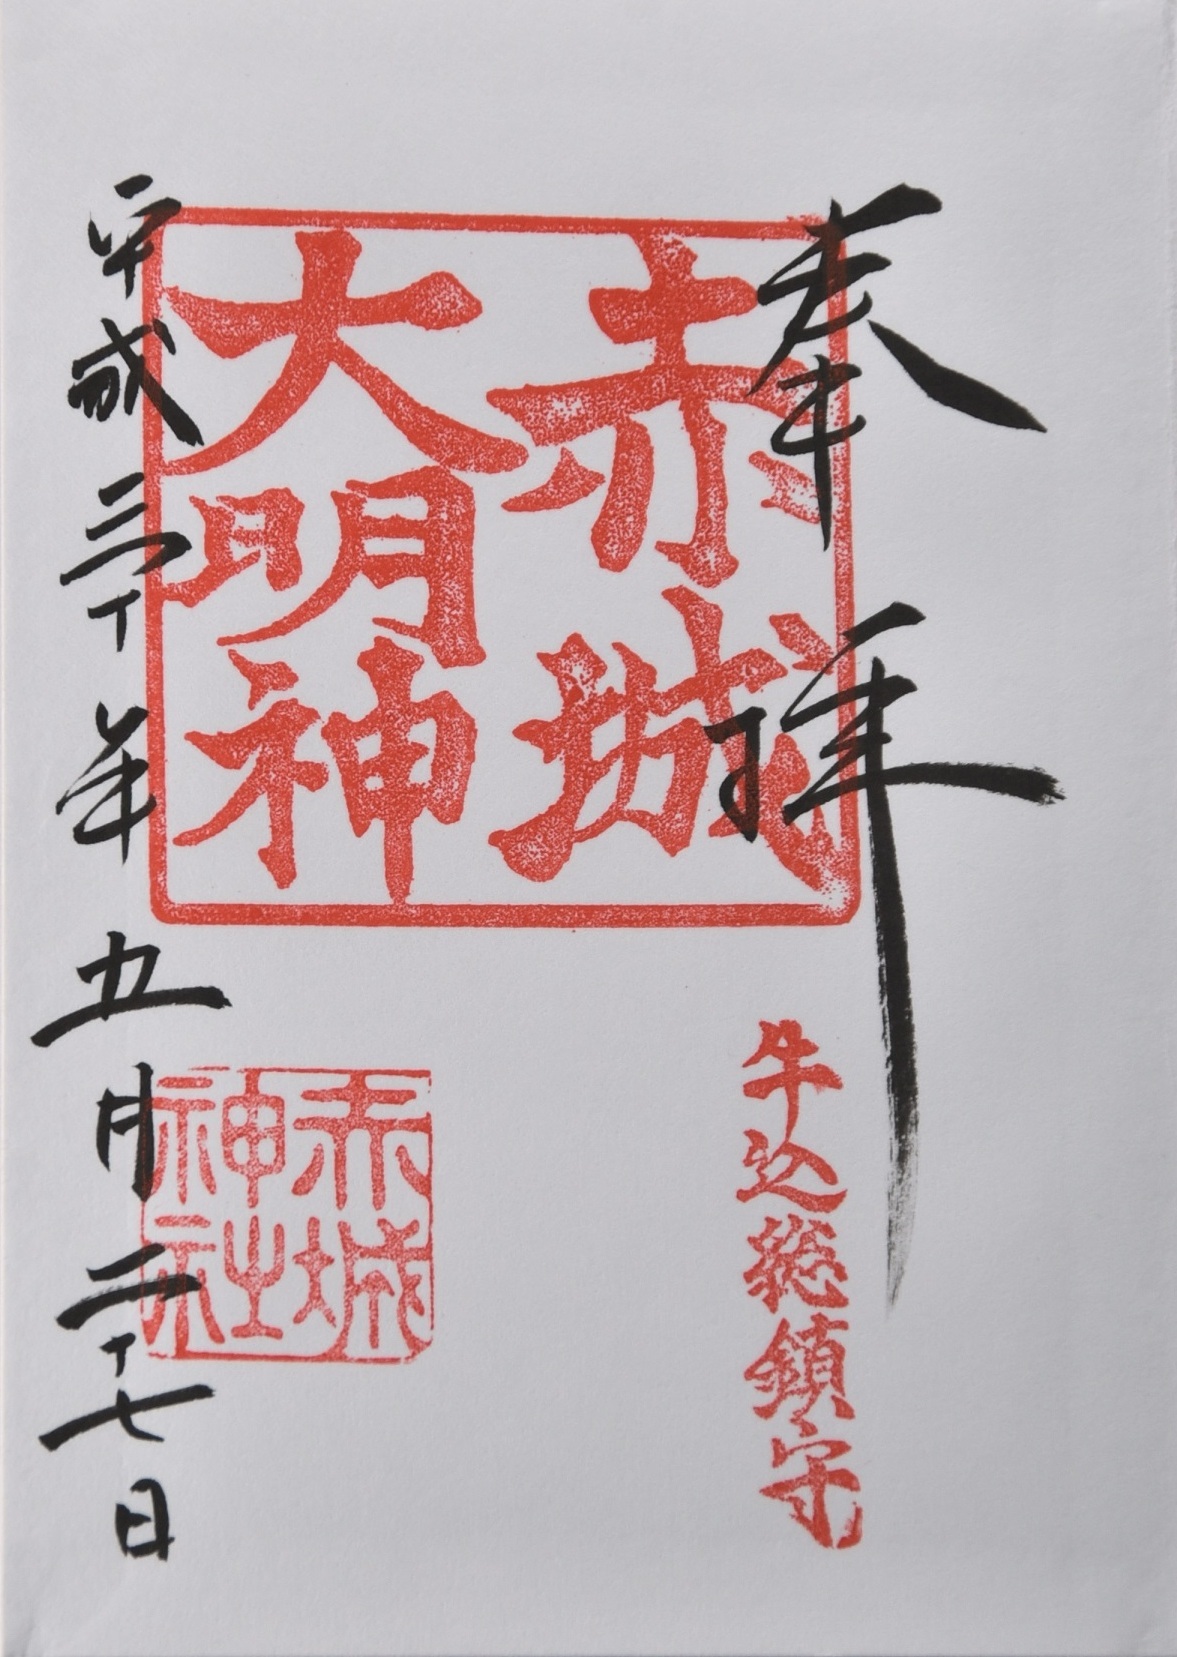 奉拝
赤城
大明神
牛込総鎮守
赤城
神社
平成三十年五月二十七日